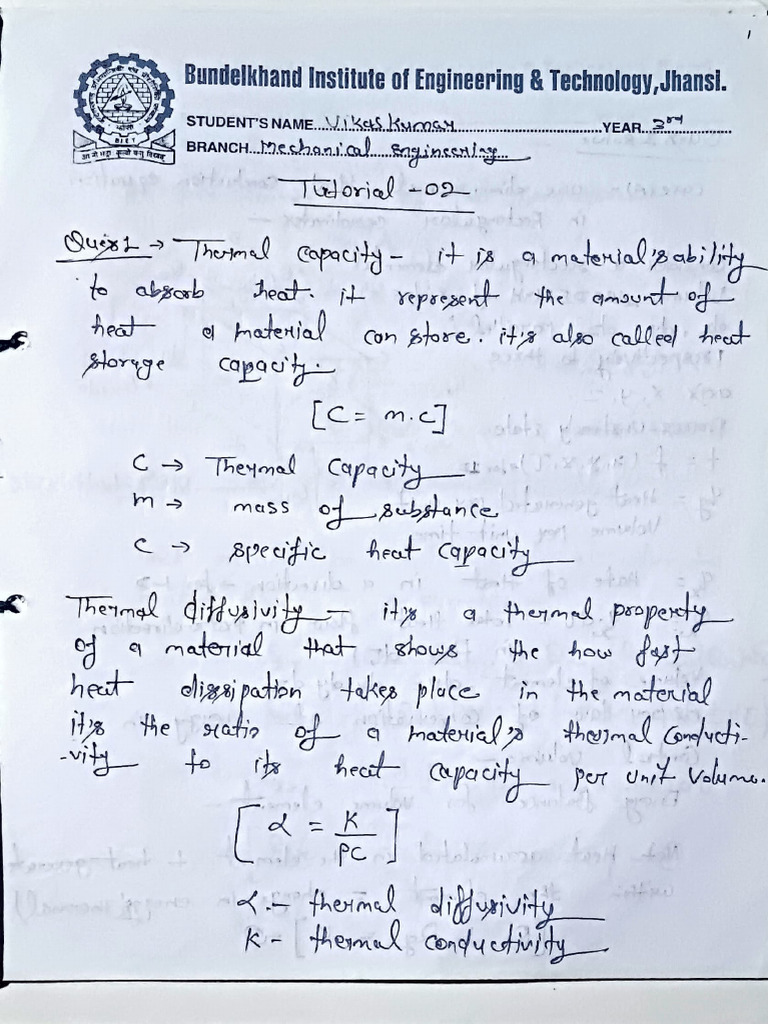 1
Bundelkhand Institute of Engineering & Technology, Jhansi.
STUDENT'S NAME...Vikas Kumar...YEAR...3rd...
BRANCH...Mechanical Engineering...
BIET
Tutorial - 02
Ques 1 → Thermal capacity - it is a material's ability
to absorb heat. it represent the amount of
heat a material can store. it's also called heat
storage capacity.
[C = m.c]
C → Thermal Capacity
m → mass of substance
c → specific heat capacity
Thermal diffusivity - it's a thermal property
of a material that shows the how fast
heat dissipation takes place in the material
it's the ratio of a material's thermal conducti-
-vity to its heat capacity per unit volume.
[α = K/ρC]
α - thermal diffusivity
K - thermal conductivity